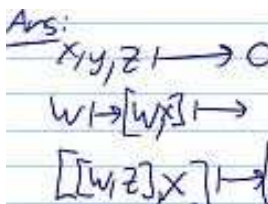 Ans:
x,y,z ⟼ 0
w ↦ [w,x] ⟼
[[w,z],x] ⟼